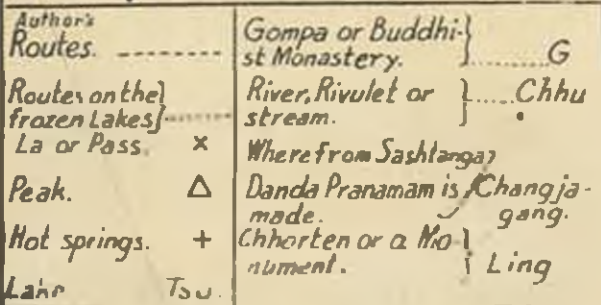 Author's
Routes. --------
Routes on the
frozen Lakes --------
La or Pass. ×
Peak. Δ
Hot springs. +
Lake Tsu.
Gompa or Buddhi-
st Monastery. ........G
River, Rivulet or
stream. ......Chhu
Where from Sashtanga
Danda Pranamam is
made. Changja-
gang.
Chhorten or a Mo-
nument. Ling